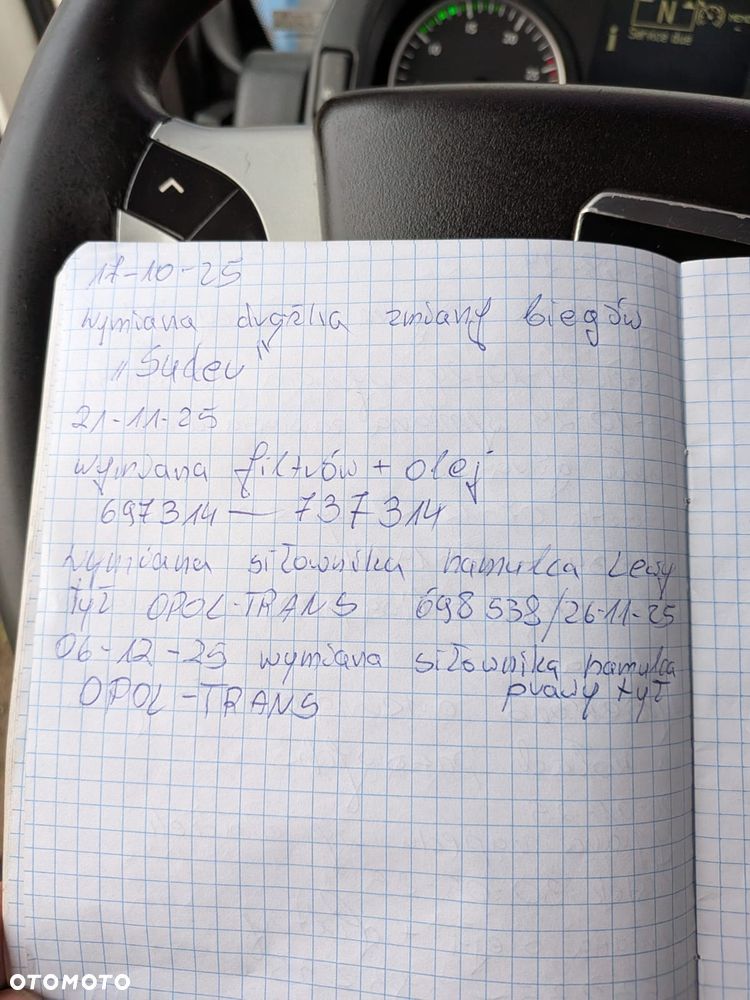 N
Service due
10
15
20
25
17-10-25
wymiana drążka zmiany biegów
"Sudeu"
21-11-25
wymiana filtrów + olej
697314 — 737314
wymiana siłownika hamulca Lewy
tył OPOL-TRANS 698 538/26-11-25
06-12-25 wymiana siłownika hamulca
OPOL-TRANS prawy tył
OTOMOTO